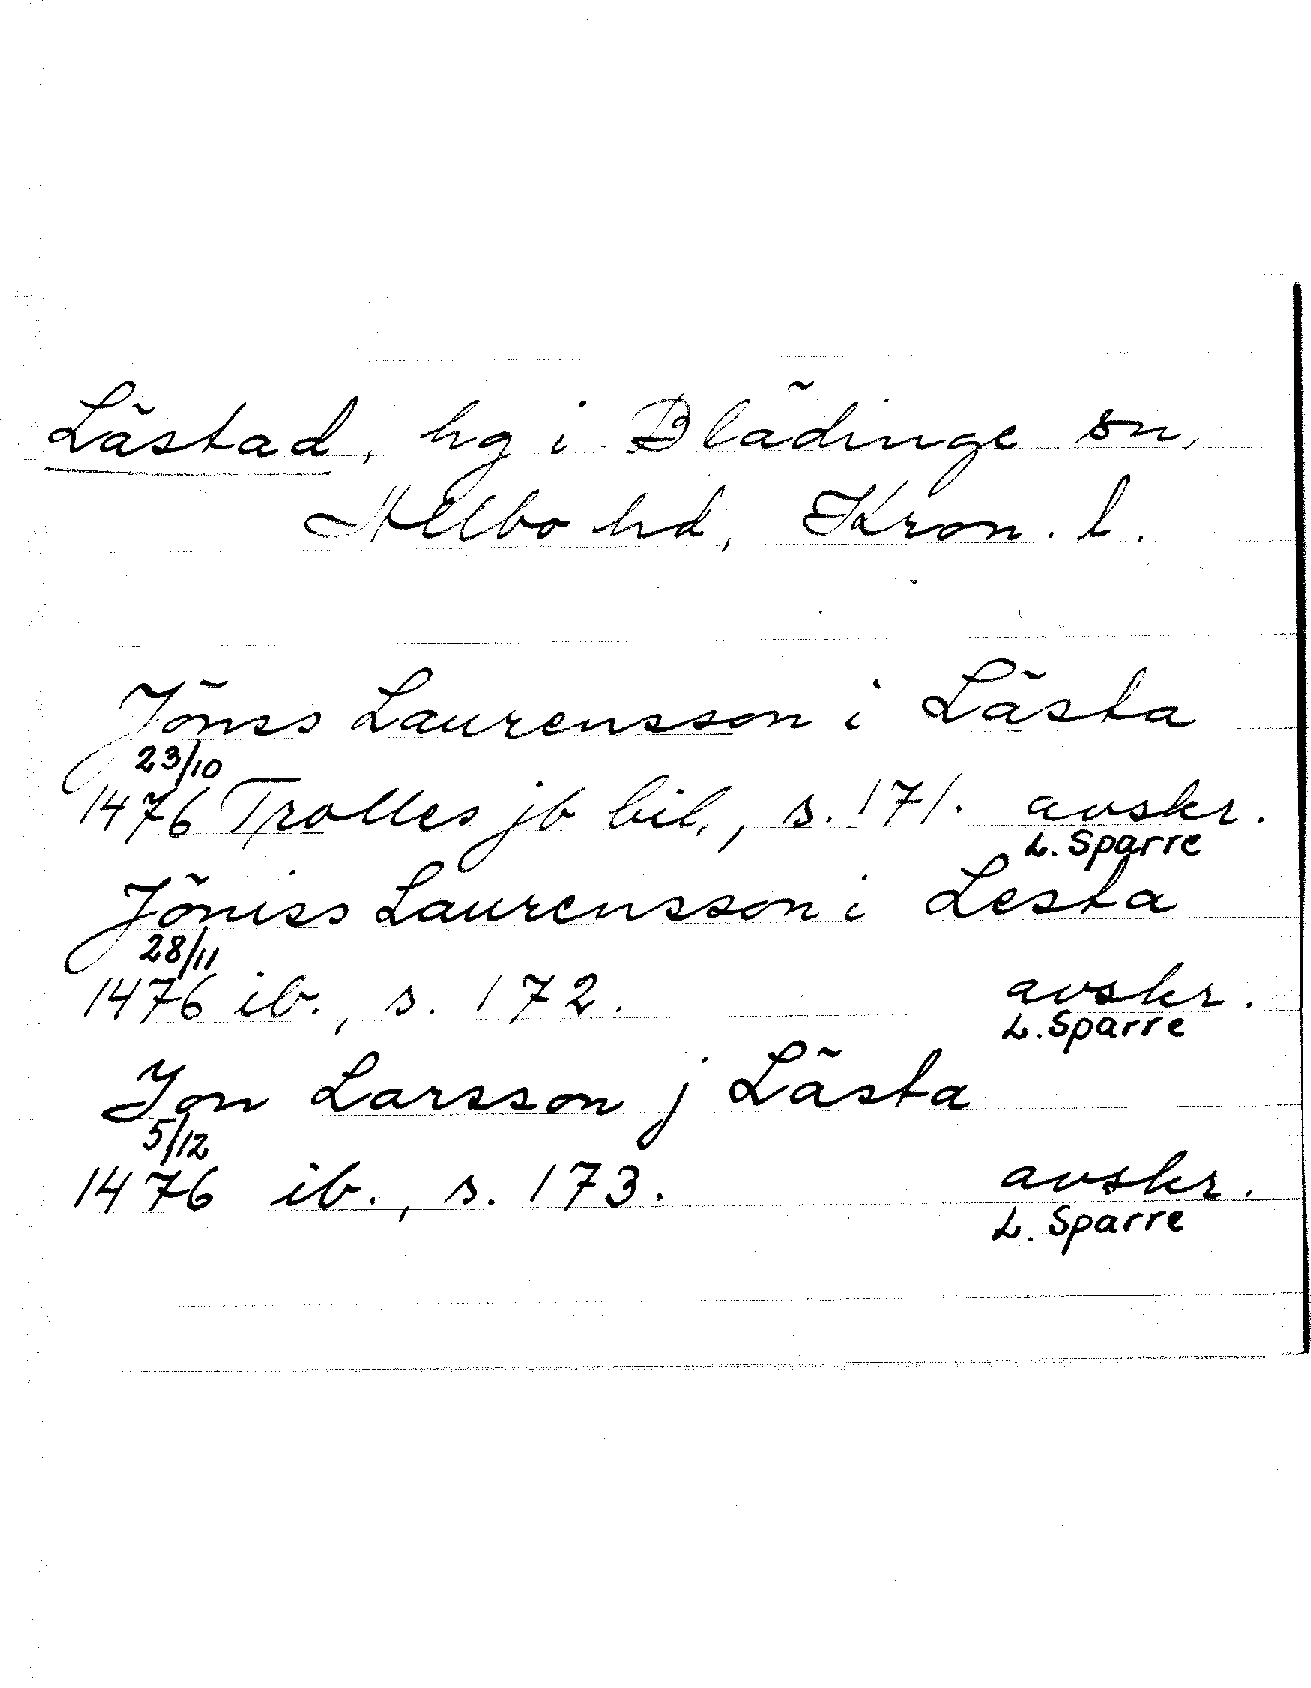 Lästad, hg i Blädinge sn,
Allbo hd, Kron. l.
Jönss Laurensson i Lästa
23/10
1476 Trolles jb bil., s. 171. avskr.
L. Sparre
Jöniss Laurensson i Lesta
28/11
1476 ib., s. 172. avskr.
L. Sparre
Jon Larsson j Lästa
5/12
1476 ib., s. 173. avskr.
L. Sparre